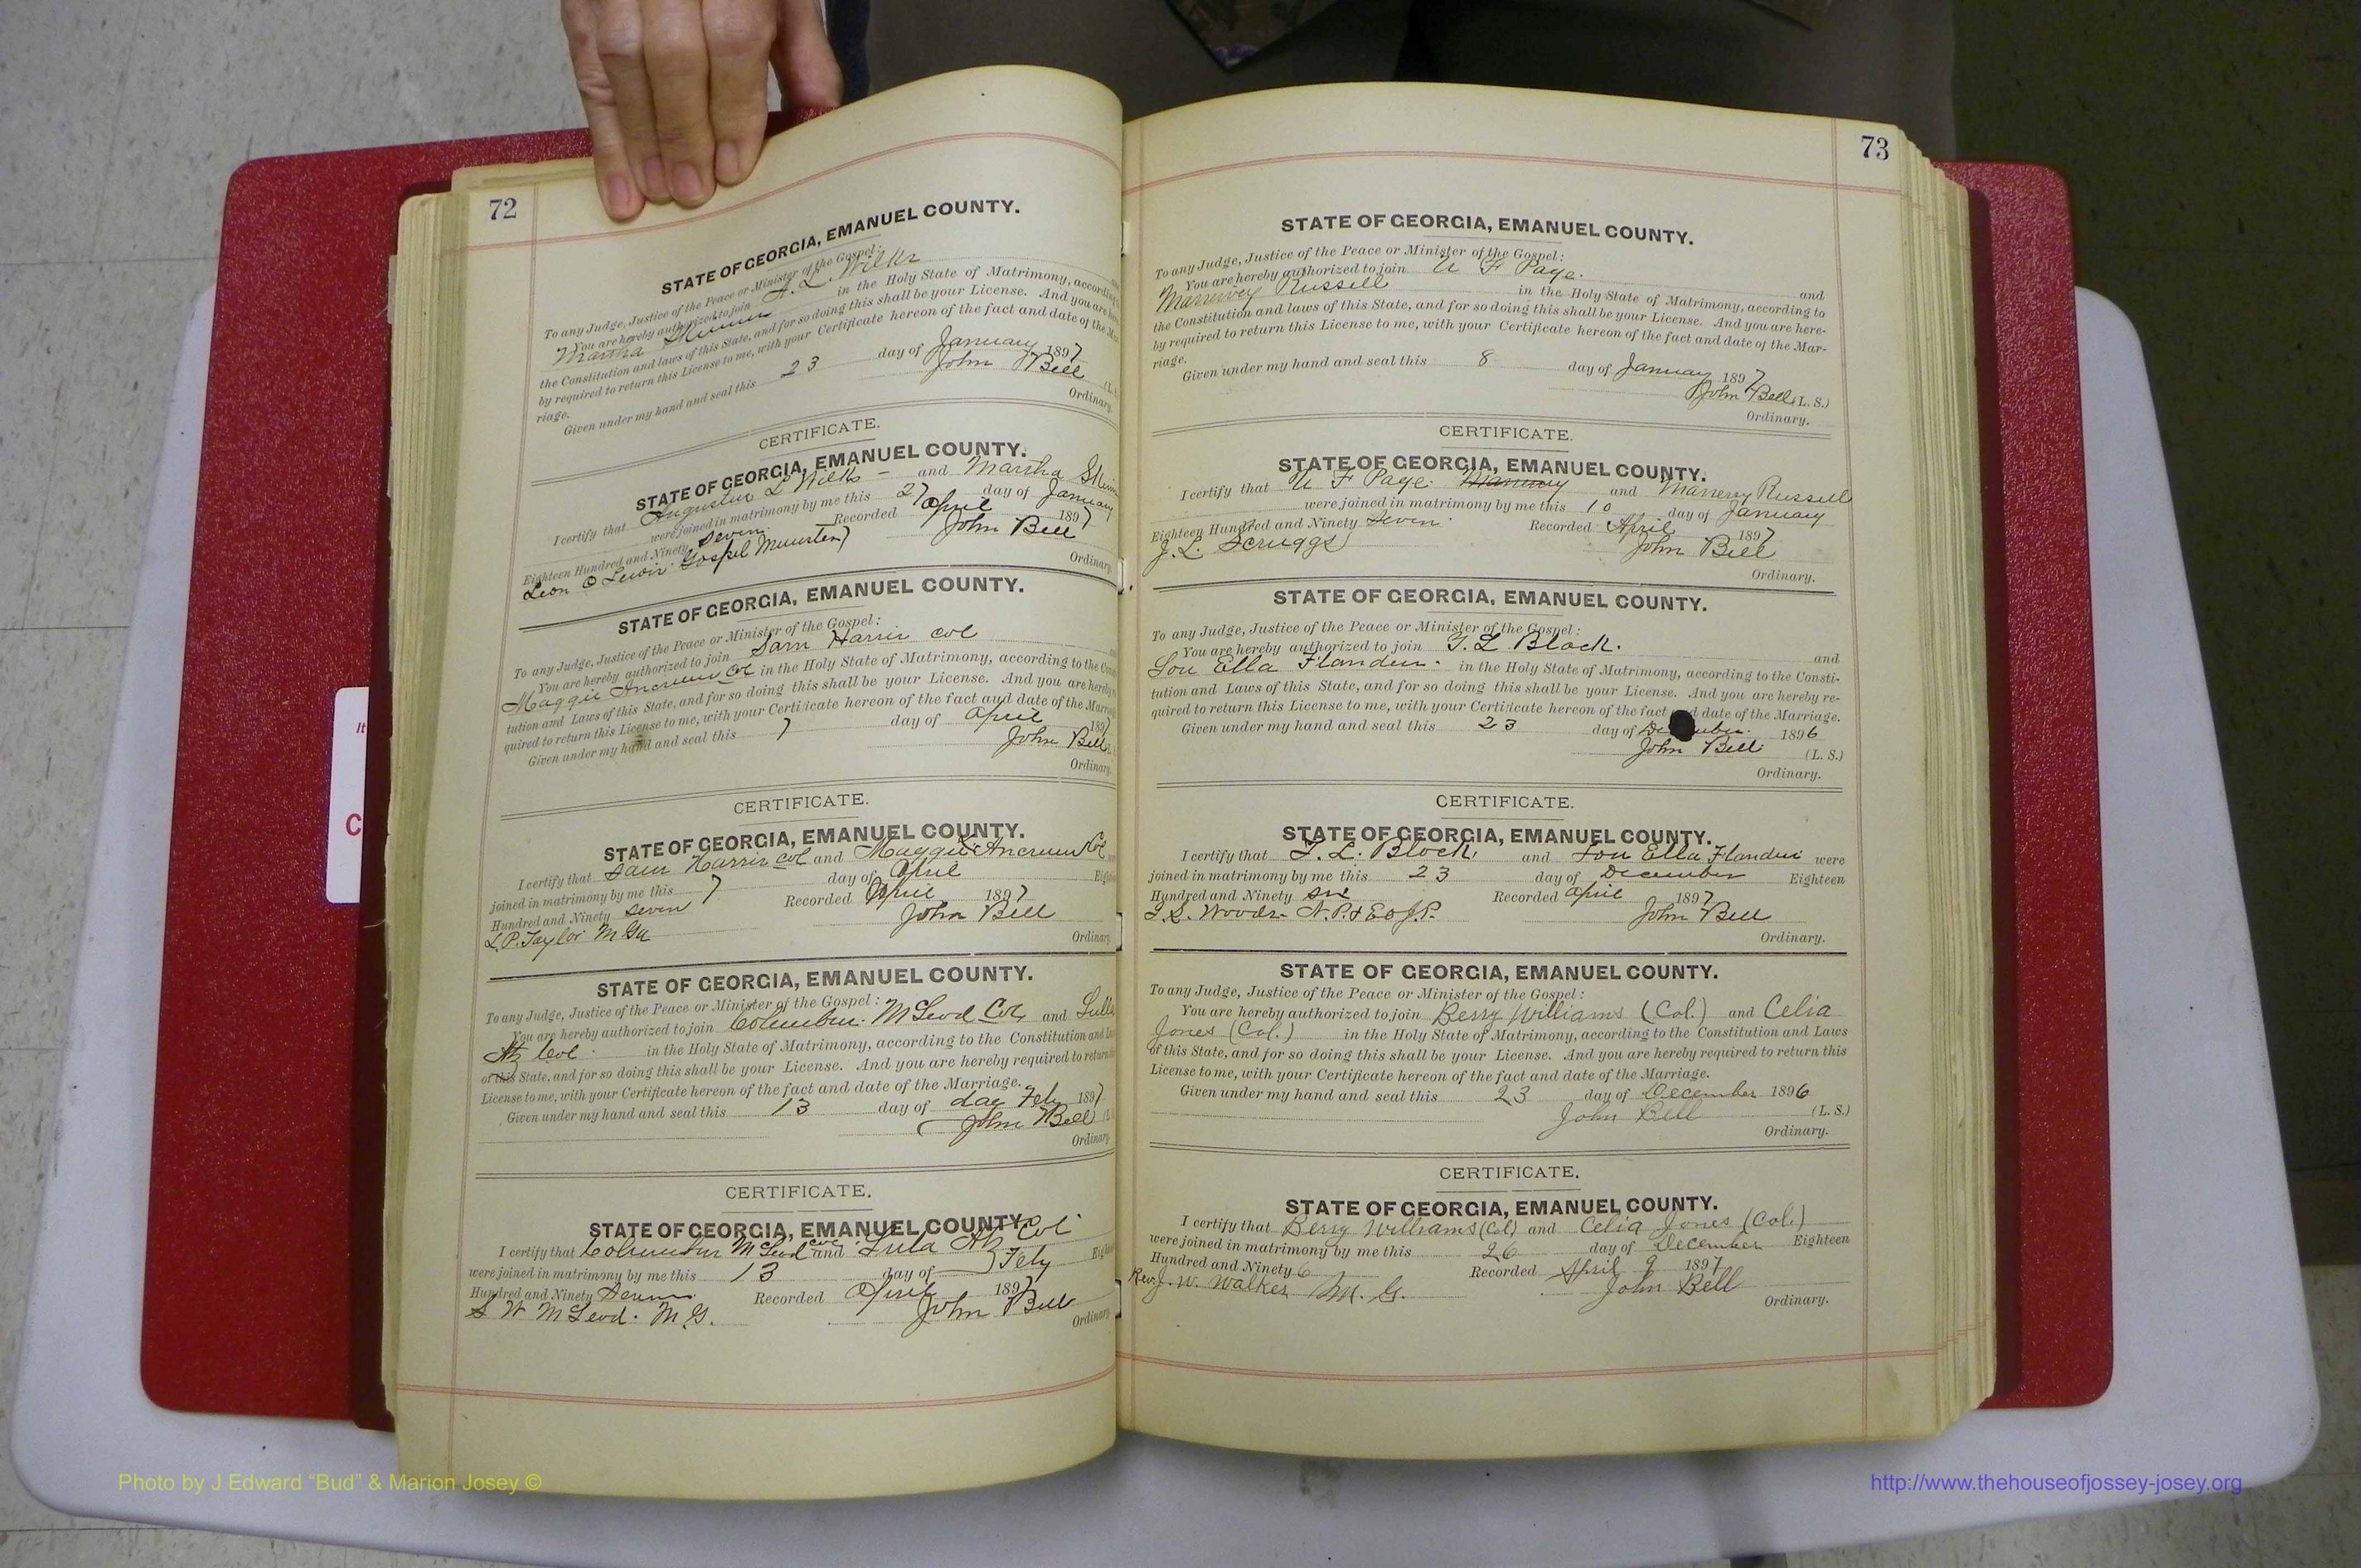 72
STATE OF GEORGIA, EMANUEL COUNTY.
To any Judge, Justice of the Peace or Minister of the Gospel:
You are hereby authorized to join A. L. Wilks
Martha in the Holy State of Matrimony, according to
the Constitution and laws of this State, and for so doing this shall be your License. And you are here-
by required to return this License to me, with your Certificate hereon of the fact and date of the Mar-
riage.
Given under my hand and seal this 23 day of January 1897
John Bell (L.
Ordinary.
CERTIFICATE.
STATE OF GEORGIA, EMANUEL COUNTY.
I certify that Augustus L Wilks - and Martha
were joined in matrimony by me this 27 day of January
Eighteen Hundred and Ninety Seven Recorded April 1897
Leon O Lewis Gospel Minister John Bell
Ordinary.
STATE OF GEORGIA, EMANUEL COUNTY.
To any Judge, Justice of the Peace or Minister of the Gospel:
You are hereby authorized to join Sam Harris col
Maggie Col in the Holy State of Matrimony, according to the
tution and Laws of this State, and for so doing this shall be your License. And you are hereby
quired to return this License to me, with your Certificate hereon of the fact and date of the Marri
Given under my hand and seal this 7 day of April 1897
John Bell
Ordinary.
CERTIFICATE.
STATE OF GEORGIA, EMANUEL COUNTY.
I certify that Sam Harris col and Maggie Col
joined in matrimony by me this 7 day of April Eigh
Hundred and Ninety seven Recorded April 1897
L. P. Taylor John Bell
Ordinary
STATE OF GEORGIA, EMANUEL COUNTY.
To any Judge, Justice of the Peace or Minister of the Gospel:
You are hereby authorized to join Columbus McLeod Col and Lula
Col in the Holy State of Matrimony, according to the Constitution and
of this State, and for so doing this shall be your License. And you are hereby required to return
License to me, with your Certificate hereon of the fact and date of the Marriage.
Given under my hand and seal this 13 day of day Feby 1897
John Bell
Ordinary
CERTIFICATE.
STATE OF GEORGIA, EMANUEL COUNTY.
I certify that Columbus McLeod col and Lula Col
were joined in matrimony by me this 13 day of Feby Eigh
Hundred and Ninety Seven Recorded April 1897
S W McLeod. M. G. John Bell
Ordinary
73
STATE OF GEORGIA, EMANUEL COUNTY.
To any Judge, Justice of the Peace or Minister of the Gospel:
You are hereby authorized to join U F Page. and
Manervy Russell in the Holy State of Matrimony, according to
the Constitution and laws of this State, and for so doing this shall be your License. And you are here-
by required to return this License to me, with your Certificate hereon of the fact and date of the Mar-
riage.
Given under my hand and seal this 8 day of January 1897
John Bell (L. S.)
Ordinary.
CERTIFICATE.
STATE OF GEORGIA, EMANUEL COUNTY.
I certify that U F Page. and Manervy Russell
were joined in matrimony by me this 10 day of January
Eighteen Hundred and Ninety Seven. Recorded April 1897
J. L. Scruggs John Bell
Ordinary.
STATE OF GEORGIA, EMANUEL COUNTY.
To any Judge, Justice of the Peace or Minister of the Gospel:
You are hereby authorized to join T. L. Block. and
Lou Ella Flanders. in the Holy State of Matrimony, according to the Consti-
tution and Laws of this State, and for so doing this shall be your License. And you are hereby re-
quired to return this License to me, with your Certificate hereon of the fact d date of the Marriage.
Given under my hand and seal this 23 day of December 1896
John Bell (L. S.)
Ordinary.
CERTIFICATE.
STATE OF GEORGIA, EMANUEL COUNTY.
I certify that T. L. Block. and Lou Ella Flanders were
joined in matrimony by me this 23 day of December Eighteen
Hundred and Ninety six Recorded April 1897
Woods N.P. & Ex O J.P. John Bell
Ordinary.
STATE OF GEORGIA, EMANUEL COUNTY.
To any Judge, Justice of the Peace or Minister of the Gospel:
You are hereby authorized to join Berry Williams (Col.) and Celia
Jones (Col.) in the Holy State of Matrimony, according to the Constitution and Laws
of this State, and for so doing this shall be your License. And you are hereby required to return this
License to me, with your Certificate hereon of the fact and date of the Marriage.
Given under my hand and seal this 23 day of December 1896
John Bell (L. S.)
Ordinary.
CERTIFICATE.
STATE OF GEORGIA, EMANUEL COUNTY.
I certify that Berry Williams (Col) and Celia Jones (Col.)
were joined in matrimony by me this 26 day of December Eighteen
Hundred and Ninety 6 Recorded April 9 1897
Rev. J. W. Walker M. G. John Bell
Ordinary.
It
C
Photo by J Edward “Bud” & Marion Josey ©
http://www.thehouseofjossey-josey.org